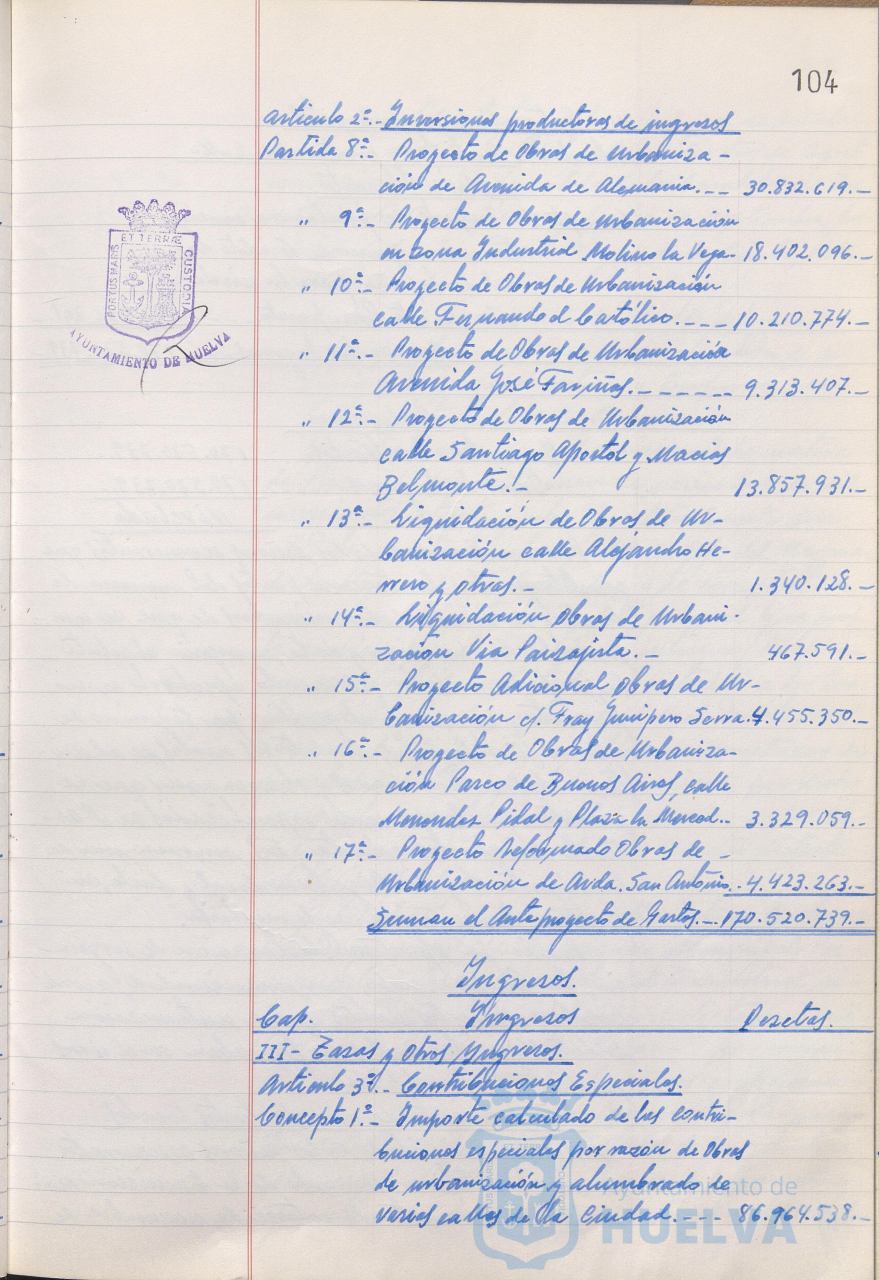 104
Artículo 2º.- Inversiones productoras de ingresos
Partida 8ª.- Proyecto de Obras de Urbaniza-
ción de Avenida de Alemania.-- 30.832.619.-
" 9ª.- Proyecto de Obras de Urbanización
en zona Industrial Molino la Vega- 18.402.096.-
" 10ª.- Proyecto de Obras de Urbanización
calle Fernando el Católico.---- 10.210.774.-
" 11ª.- Proyecto de Obras de Urbanización
Avenida José Fariñas.------ 9.313.407.-
" 12ª.- Proyecto de Obras de Urbanización
calle Santiago Apostol y Macias
Belmonte.- 13.857.931.-
" 13ª.- Liquidación de Obras de Ur-
banización calle Alejandro He-
rrero y otras.- 1.340.128.-
" 14ª.- Liquidación Obras de Urbani-
zación Via Paisajista.- 467.591.-
" 15ª.- Proyecto Adicional Obras de Ur-
banización c/. Fray Junipero Serra. 4.455.350.-
" 16ª.- Proyecto de Obras de Urbaniza-
ción Parco de Buenos Aires, calle
Menendez Pidal y Plaza la Merced.- 3.329.059.-
" 17ª.- Proyecto Reformado Obras de -
Urbanización de Avda. San Antonio.- 4.423.263.-
Suman el Anteproyecto de Gastos.- 170.520.739.-
Ingresos.
Cap. Ingresos Pesetas.
III- Tasas y Otros Ingresos.
Artículo 3º.- Contribuciones Especiales.
Concepto 1º.- Importe calculado de las contri-
buciones especiales por razón de Obras
de urbanización y alumbrado de
varias calles de la Ciudad.--- 86.964.538.-
PORTUS MARIS
ET TERRÆ
CUSTODIA
AYUNTAMIENTO DE HUELVA
Ayuntamiento de
HUELVA